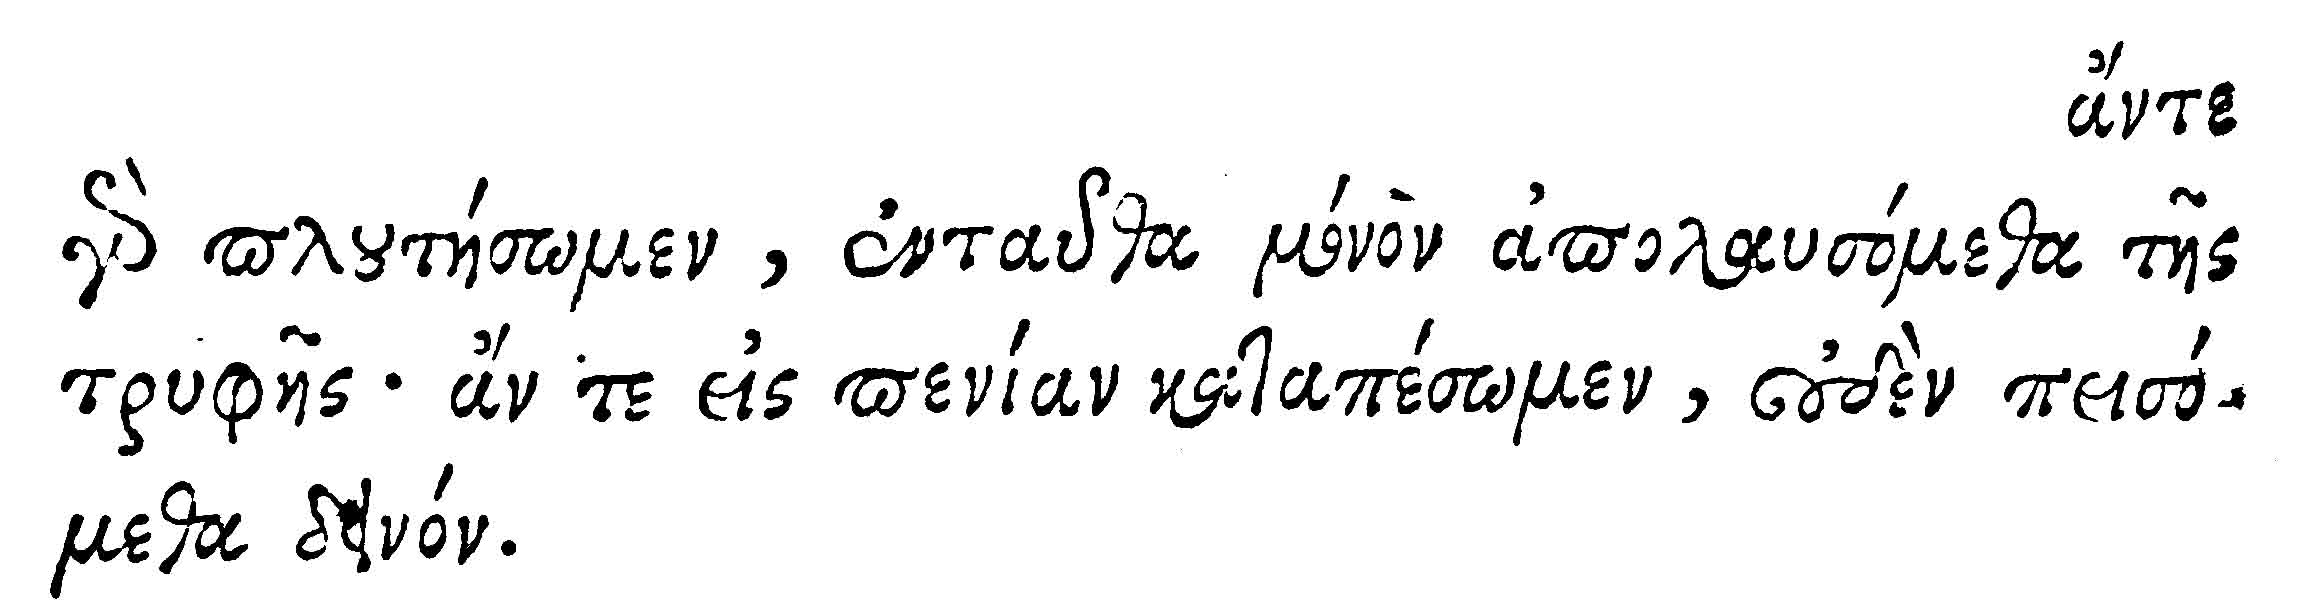 ἄντε
γὰρ πλουτήσωμεν, ἐνταῦθα μόνὸν ἀπολαυσόμεθα τῆς
τρυφῆς· ἄν τε εἰς πενίαν καταπέσωμεν, οὐδὲν πεισό-
μεθα δεινόν.